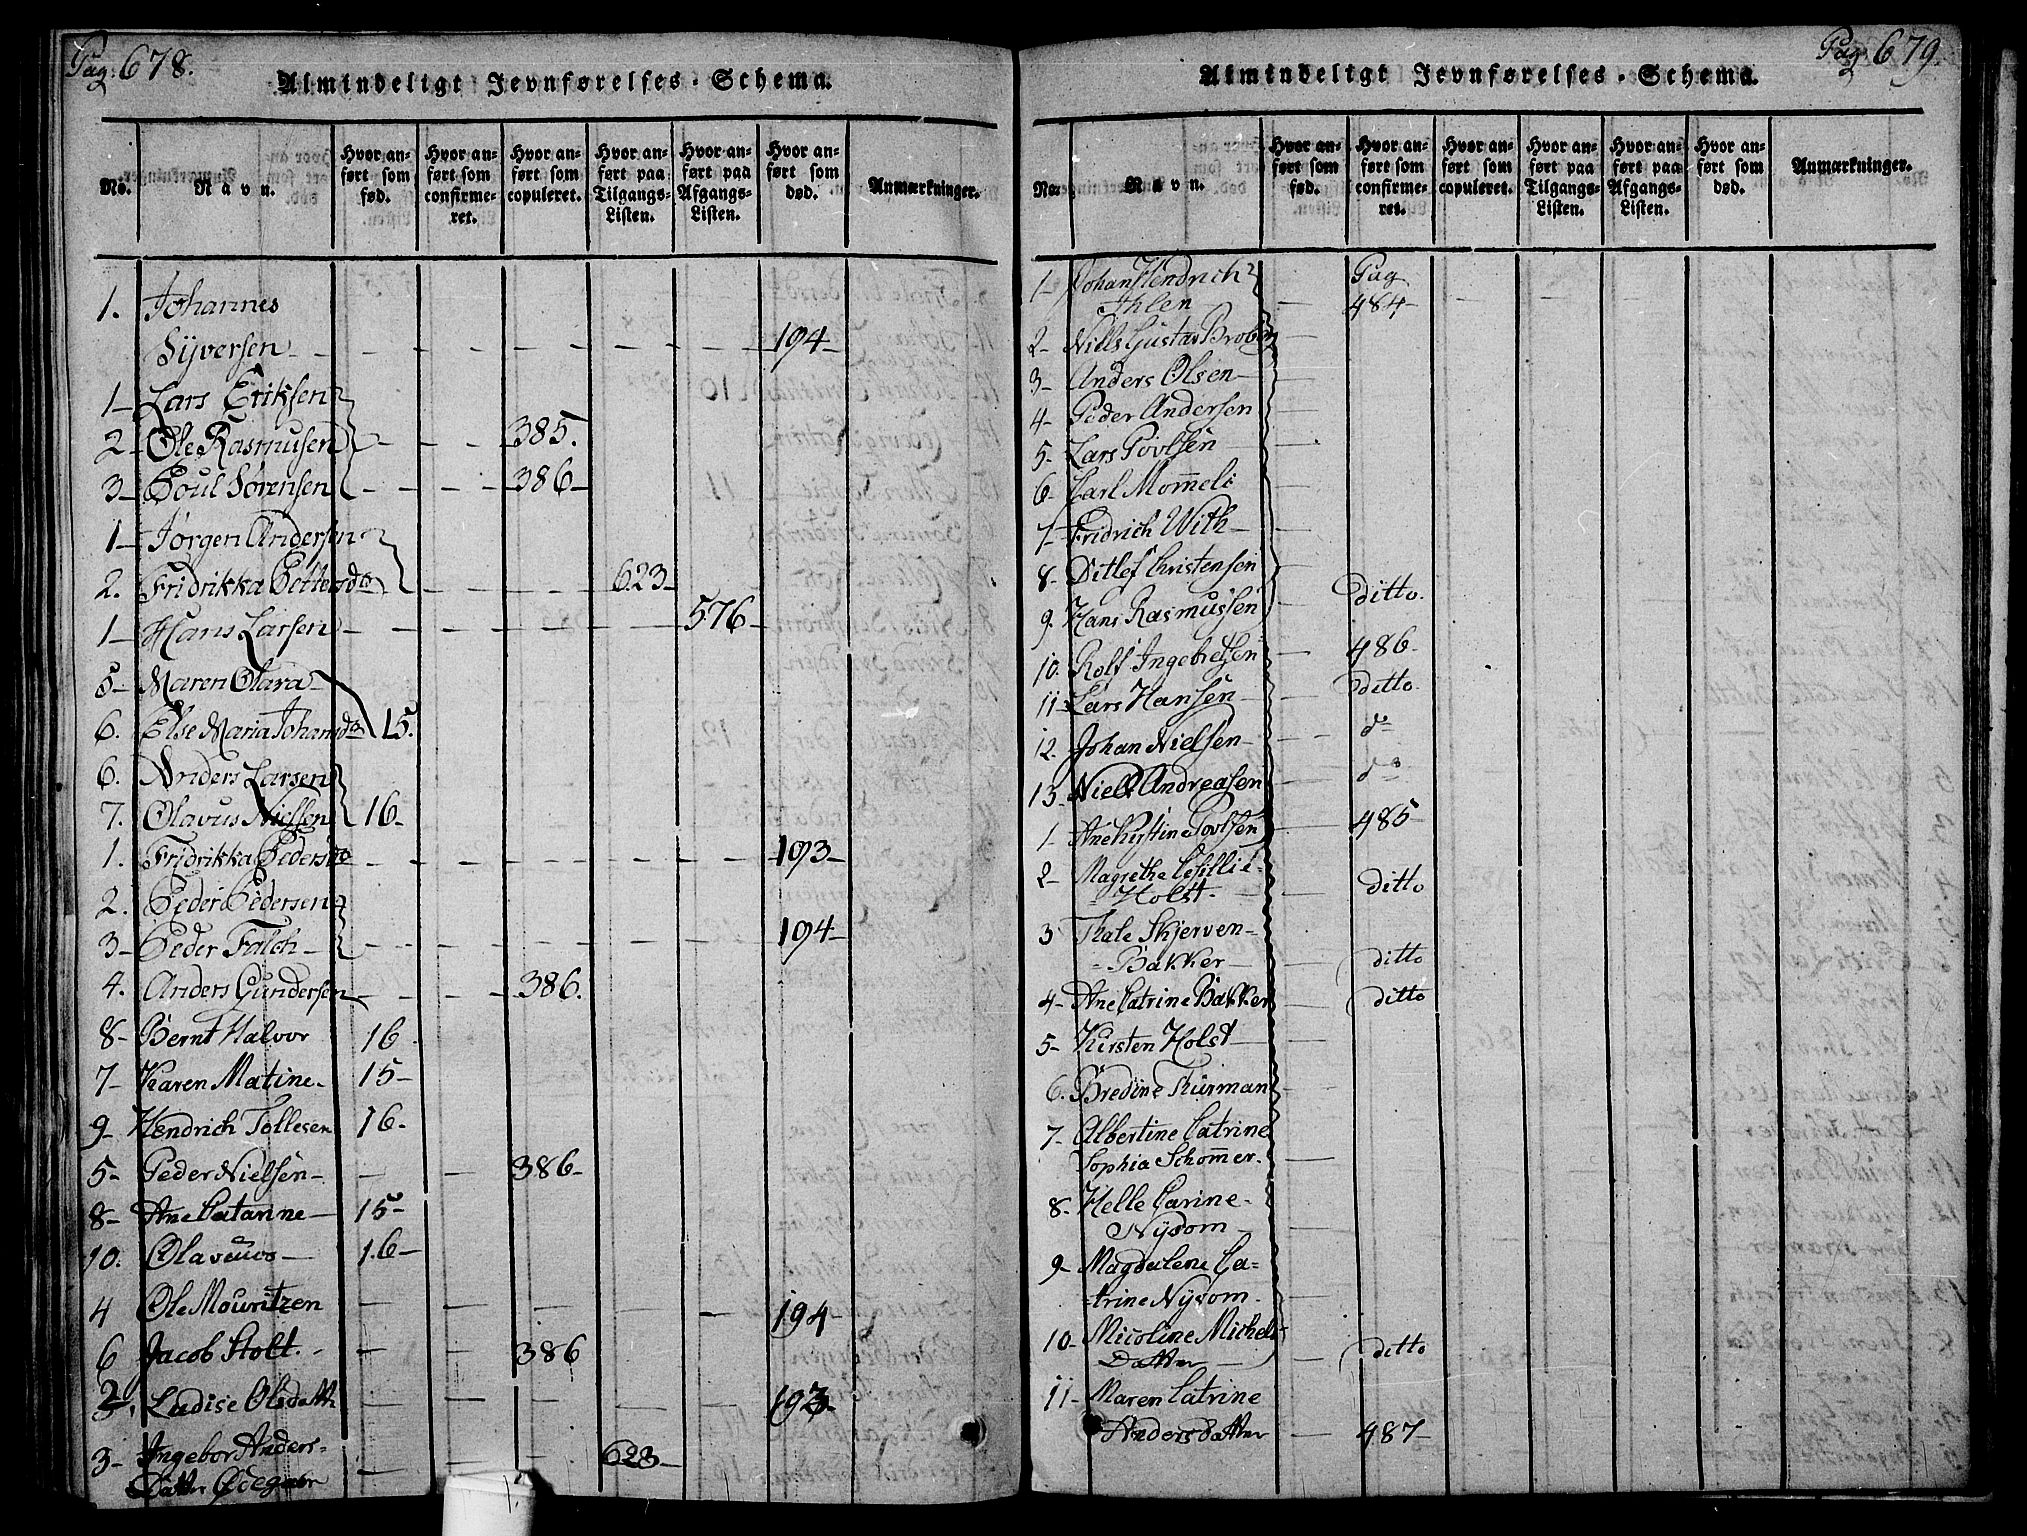 Pag: 678.
Almindeligt Jevnførelses-Schema.
No. Navn. Hvor anført som fød. Hvor anført som confirmeret. Hvor anført som copuleret. Hvor anført paa Tilgangs-Listen. Hvor anført paa Afgangs-Listen. Hvor anført som død. Anmærkninger.
1. Johannes
Syversen - - - - - - 194-
1- Lars Eriksen
2- Ole Rasmusen - - - 385.
3- Poul Sørensen - - - 386-
1- Jørgen Andersen
2. Fridrikka Pettersd - - - - 623-
1- Hans Larsen - - - - - 576-
5- Maren Olava-
6. Else Maria Johansd 15.
6. Anders Larsen
7. Olavus Nielsen 16-
1. Fridrikka Pedersd - - - - - 193-
2. Peder Pedersen
3- Peder Falch - - - - - - 194-
4. Anders Gundersen - - - 386.
8- Bernt Halvor 16
7- Karen Matine- 15-
9- Hendrich Tollesen 16-
5- Peder Nielsen - - - 386-
8- Ane Catarine- 15-
10. Olavuus- 16-
4 Ole Mouritzen - - - - - 194-
6 Jacob Stolt. - - 386
2. Ladise Olsdattr - - - - - 193-
3- Ingebor Anders-
Dattr Ødegaar - - - 623-
Pag 679.
Almindeligt Jevnførelses-Schema.
No. Navn. Hvor anført som fød. Hvor anført som confirmeret. Hvor anført som copuleret. Hvor anført paa Tilgangs-Listen. Hvor anført paa Afgangs-Listen. Hvor anført som død. Anmærkninger.
1- Johan Hendrich Pag
Ihlen - 484-
2- Niels Gustav
3- Anders Olsen-
4- Peder Andersen
5- Lars Povlsen
6- Carl Mommeli
7- Fridrich With-
8- Ditlef Christensen
9. Hans Rasmussen - ditto.
10. Rolf Ingebretsen - 486-
11- Lars Hansen - ditto.
12. Johan Nielsen - do
13. Niels Andreasen - do
1- Ane Kirstine Povlsen - 485-
2- Magrethe Cesillie
Holst - ditto
3 Thale Skjerven-
Bakker - ditto
4- Ane Catrine Bakker - ditto
5- Kirsten Holst
6. Bredine Thurman
7- Albertine Catrine
Sophia Schommer.
8- Helle Carine-
Nysom
9- Magdalene Ca-
trine Nysom.
10- Nicoline Michels
Datter - ditto
11- Maren Catrine
Andersdatter - 487-